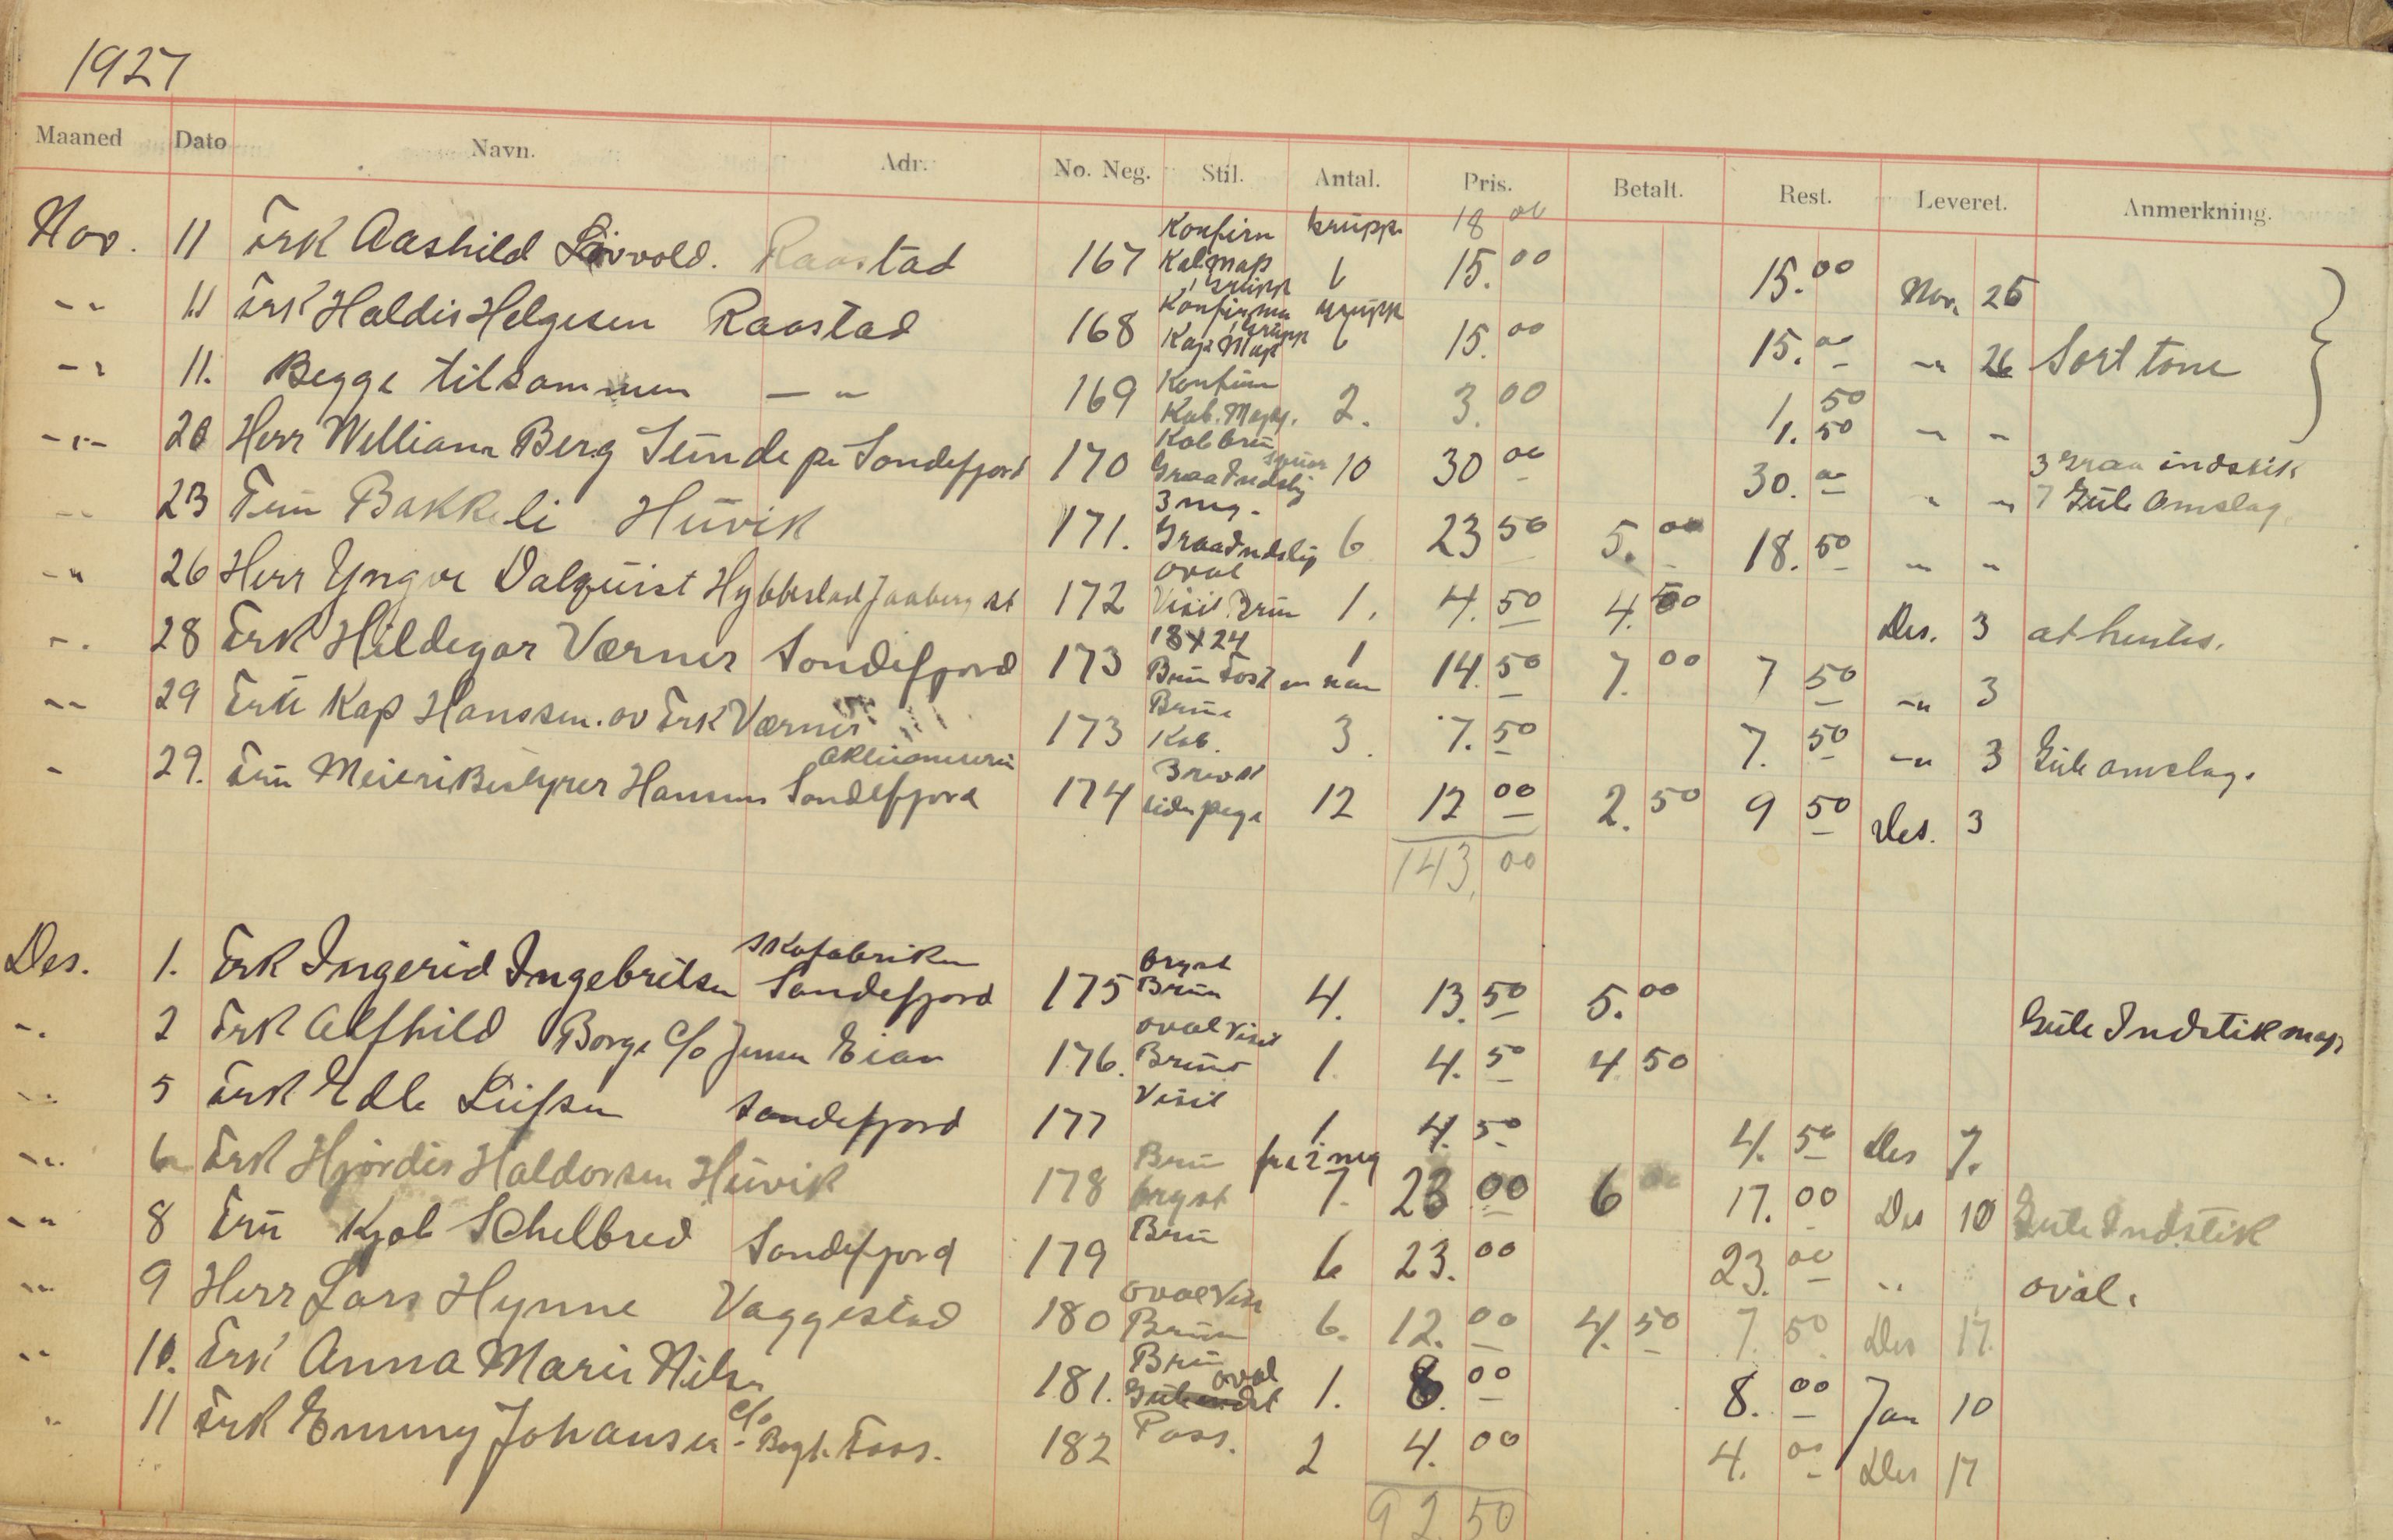 1927
Maaned Dato Navn. Adr. No. Neg. Stil. Antal. Pris. Betalt. Rest. Leveret. Anmerkning.
Konfirm grupp 18 00
Nov. 11 Frk Aashild Lövvold. Raastad 167 Kab. Map 6 15.00 15.00 Nov. 26
grupp
Konfirma grupp
-- 11 Frk Haldis Helgesen Raastad 168 Kap. Map grupp 6 15.00 15.00 -"- 26 Sort tone
-- 11. Begge tilsammen — " 169 Konfirm Kab. Map. 2. 3.00 1.50
1.50 " "
--- 20 Herr William Berg Sunde pr Sandefjord 170 Kab brun Graa Indslag 10 30 00 30.00 " " 3 graa indstik
7 Gule Omslag
-- 23 Fru Bakkeli Huvik 171. 3 neg. Graa Indslag 6 23 50 5.00 18.50 " "
-" 26 Herr Yngve Dalquist Hybbestad Jaaberg st 172 oval Visit Brun 1. 4.50 4.50 Des. 3 at hentes.
-. 28 Frk Hildegar Værner Sandefjord 173 18x24 Brun 1 14.50 7.00 7 50 -" 3
-- 29 Fru Kap Hanssen. av Frk Værner 173 Brun Kab. 3. 7.50 7.50 -" 3 Gule omslag.
- 29. Fru Meieribestyrer Hansen Sandefjord 174 Brevk 12 12 00 2.50 9 50 Des. 3
143.00
Skofabriken
Des. 1. Frk Ingerid Ingebritsen Sandefjord 175 bryst Brun 4. 13.50 5.00 Gule Indstik map
-. 2 Frk Alfhild Borge c/o Jensen Eian 176. oval Visit Brun 1. 4.50 4 50
-. 5 Frk Edle Luifsen Sandefjord 177 Visit 1. 4.50 4.50 Des 7.
-. 6 Frk Hjördis Haldorsen Huvik 178 Brun bryst fra 2 neg 7. 23 00 6 00 17.00 Des 10 Gule Indstik
-" 8 Fru Kjøl Schelbred Sandefjord 179 Brun 6 23.00 23.00 " oval.
" 9 Herr Lars Hynne Vaggestad 180 oval Visit Brun 6. 12.00 4.50 7.50 Des 17.
" 10. Frk Anna Marie Nilsen 181. Brun oval 1. 8.00 8.00 Jan 10
" 11 Frk Emmy Johansen c/o Bagk. Foss. 182 Pass. 2 4.00 4.00 Des 17
92.50